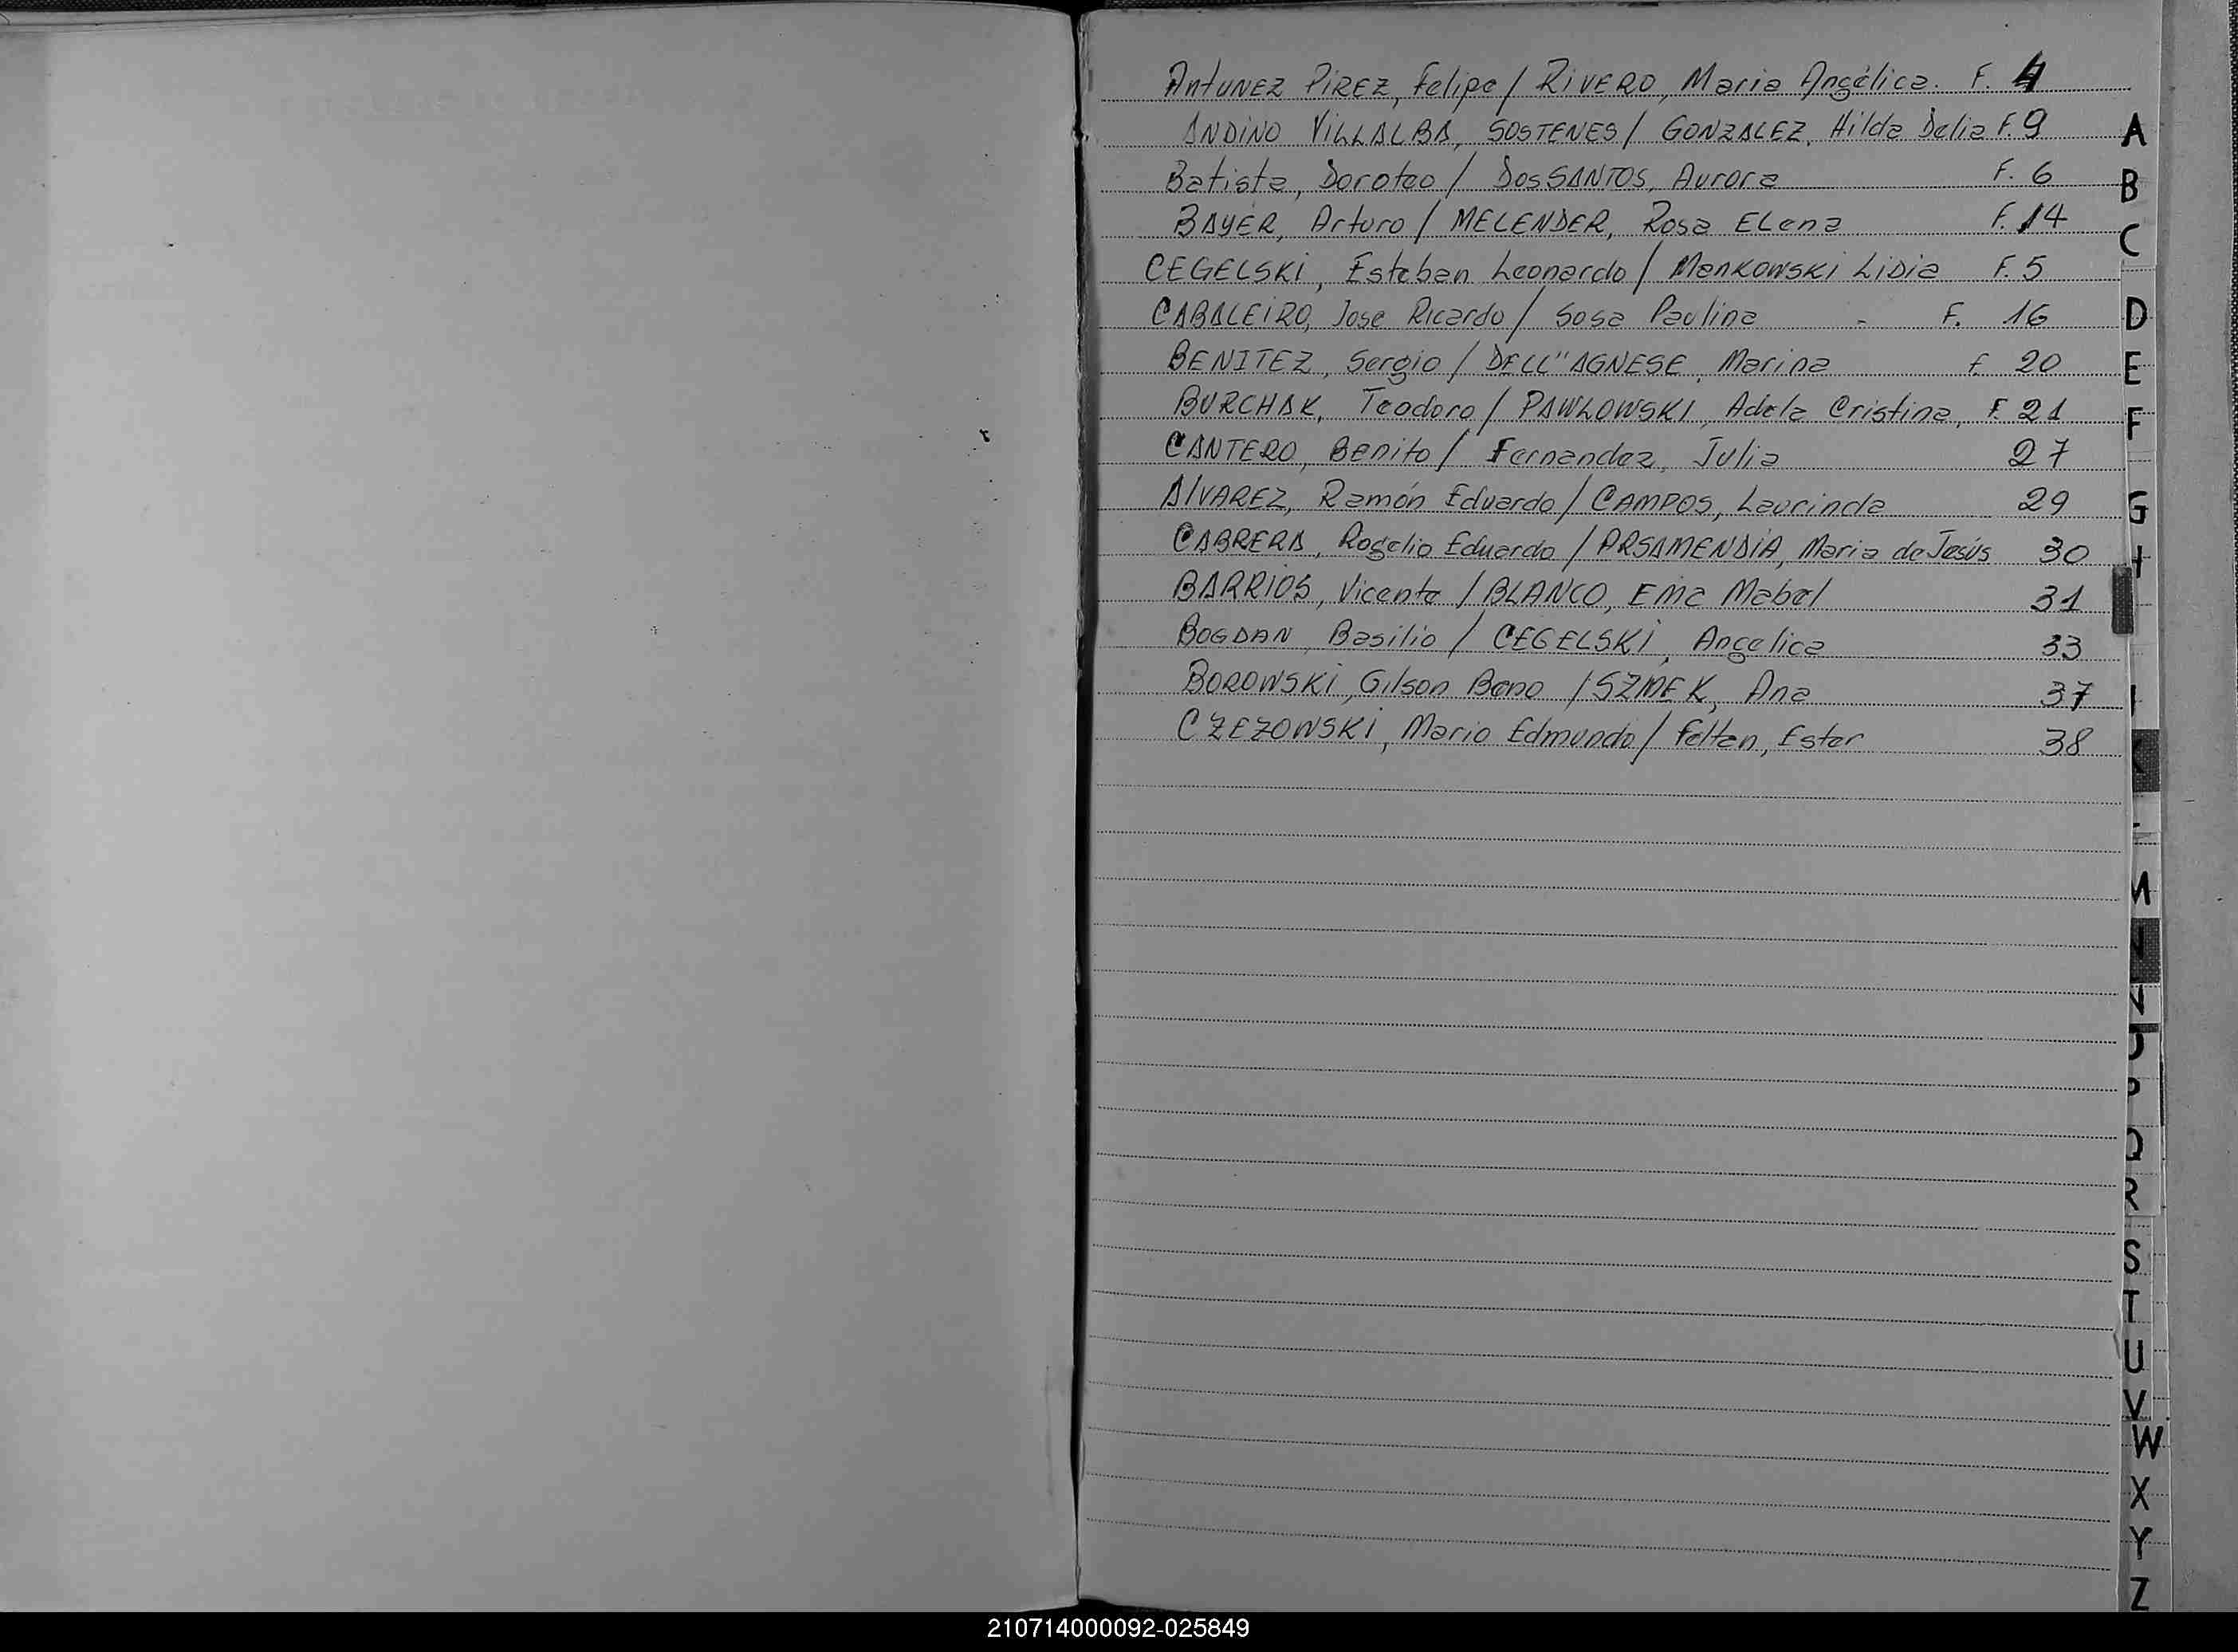 Antunez Pirez, Felipe / RIVERO, Maria Angélica. F. 4
ANDINO VILLALBA, SOSTENES / GONZALEZ, Hilda Delia F. 9
A
Batista, Doroteo / DosSANTOS, Aurora F. 6
B
BAYER, Arturo / MELENDER, Rosa ELena F. 14
C
CEGELSKI, Esteban Leonardo / Mankowski Lidia F. 5
CABALEIRO, Jose Ricardo / Sosa Paulina - F. 16
D
BENITEZ, Sergio / DELL"AGNESE, Marina F 20
E
BURCHAK, Teodoro / PAWLOWSKI, Adela Cristina, F. 21
F
CANTERO, Benito / Fernandez, Julia 27
ALVAREZ, Ramón Eduardo / CAMPOS, Laurinda 29
G
CABRERA, Rogelio Eduardo / ARSAMENDIA, Maria de Jesús 30
H
BARRIOS, Vicente / BLANCO, Ema Mabel 31
BOGDAN, Basilio / CEGELSKI, Angelica 33
BOROWSKI, Gilson Beno / SZMEK, Ana 37
CZEZOWSKI, Mario Edmundo / Felten, Ester 38
K
M
N
P
Q
R
S
T
U
V
W
X
Y
Z
210714000092-025849